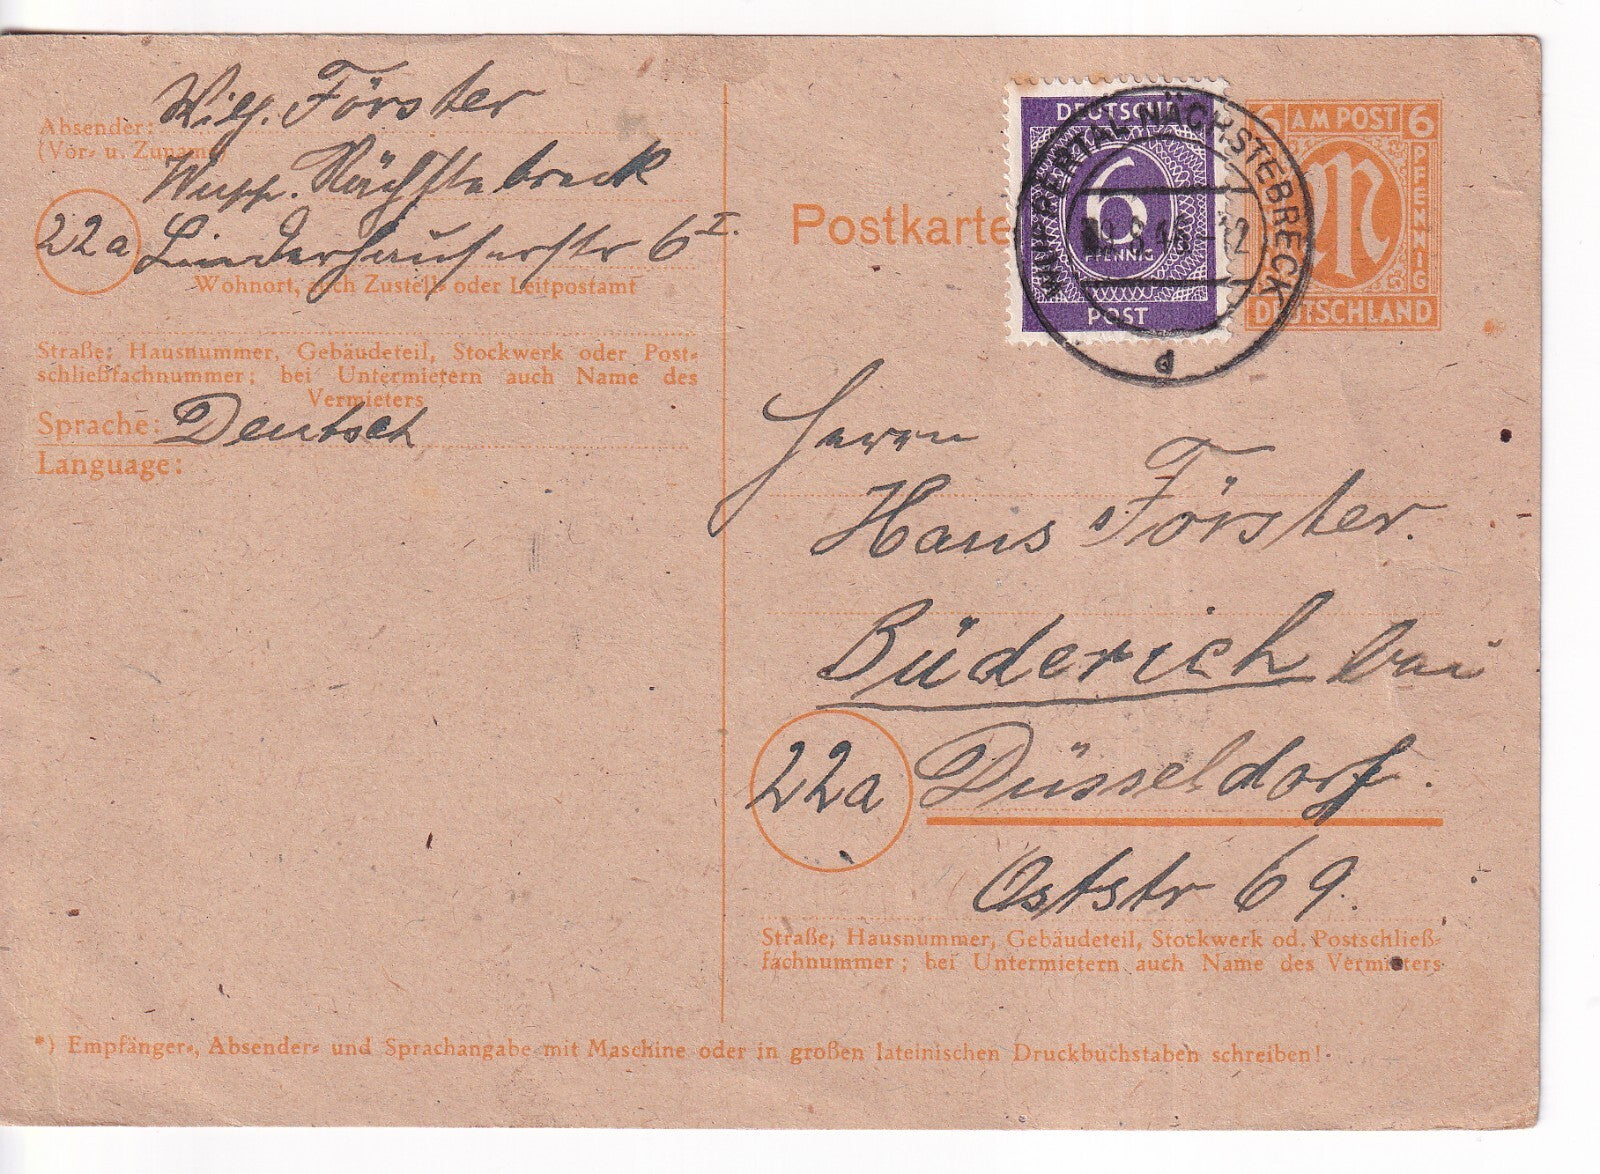 Wilh. Förster
Absender:
(Vor- u. Zuname)
Wupp. Nächstebreck
22a Linderhauserstr 6 I.
Wohnort, auch Zustell- oder Leitpostamt
Straße, Hausnummer, Gebäudeteil, Stockwerk oder Post-
schließfachnummer; bei Untermietern auch Name des
Vermieters
Sprache: Deutsch
Language:
Postkarte
DEUTSCHE
6
PFENNIG
POST
WUPPERTAL NÄCHSTEBRECK
d
6 AM POST 6
PFENNIG
M
DEUTSCHLAND
Herrn
Hans Förster.
Büderich bei
22a Düsseldorf.
Oststr 69.
Straße, Hausnummer, Gebäudeteil, Stockwerk od. Postschließ-
fachnummer; bei Untermietern auch Name des Vermieters
*) Empfänger-, Absender- und Sprachangabe mit Maschine oder in großen lateinischen Druckbuchstaben schreiben!